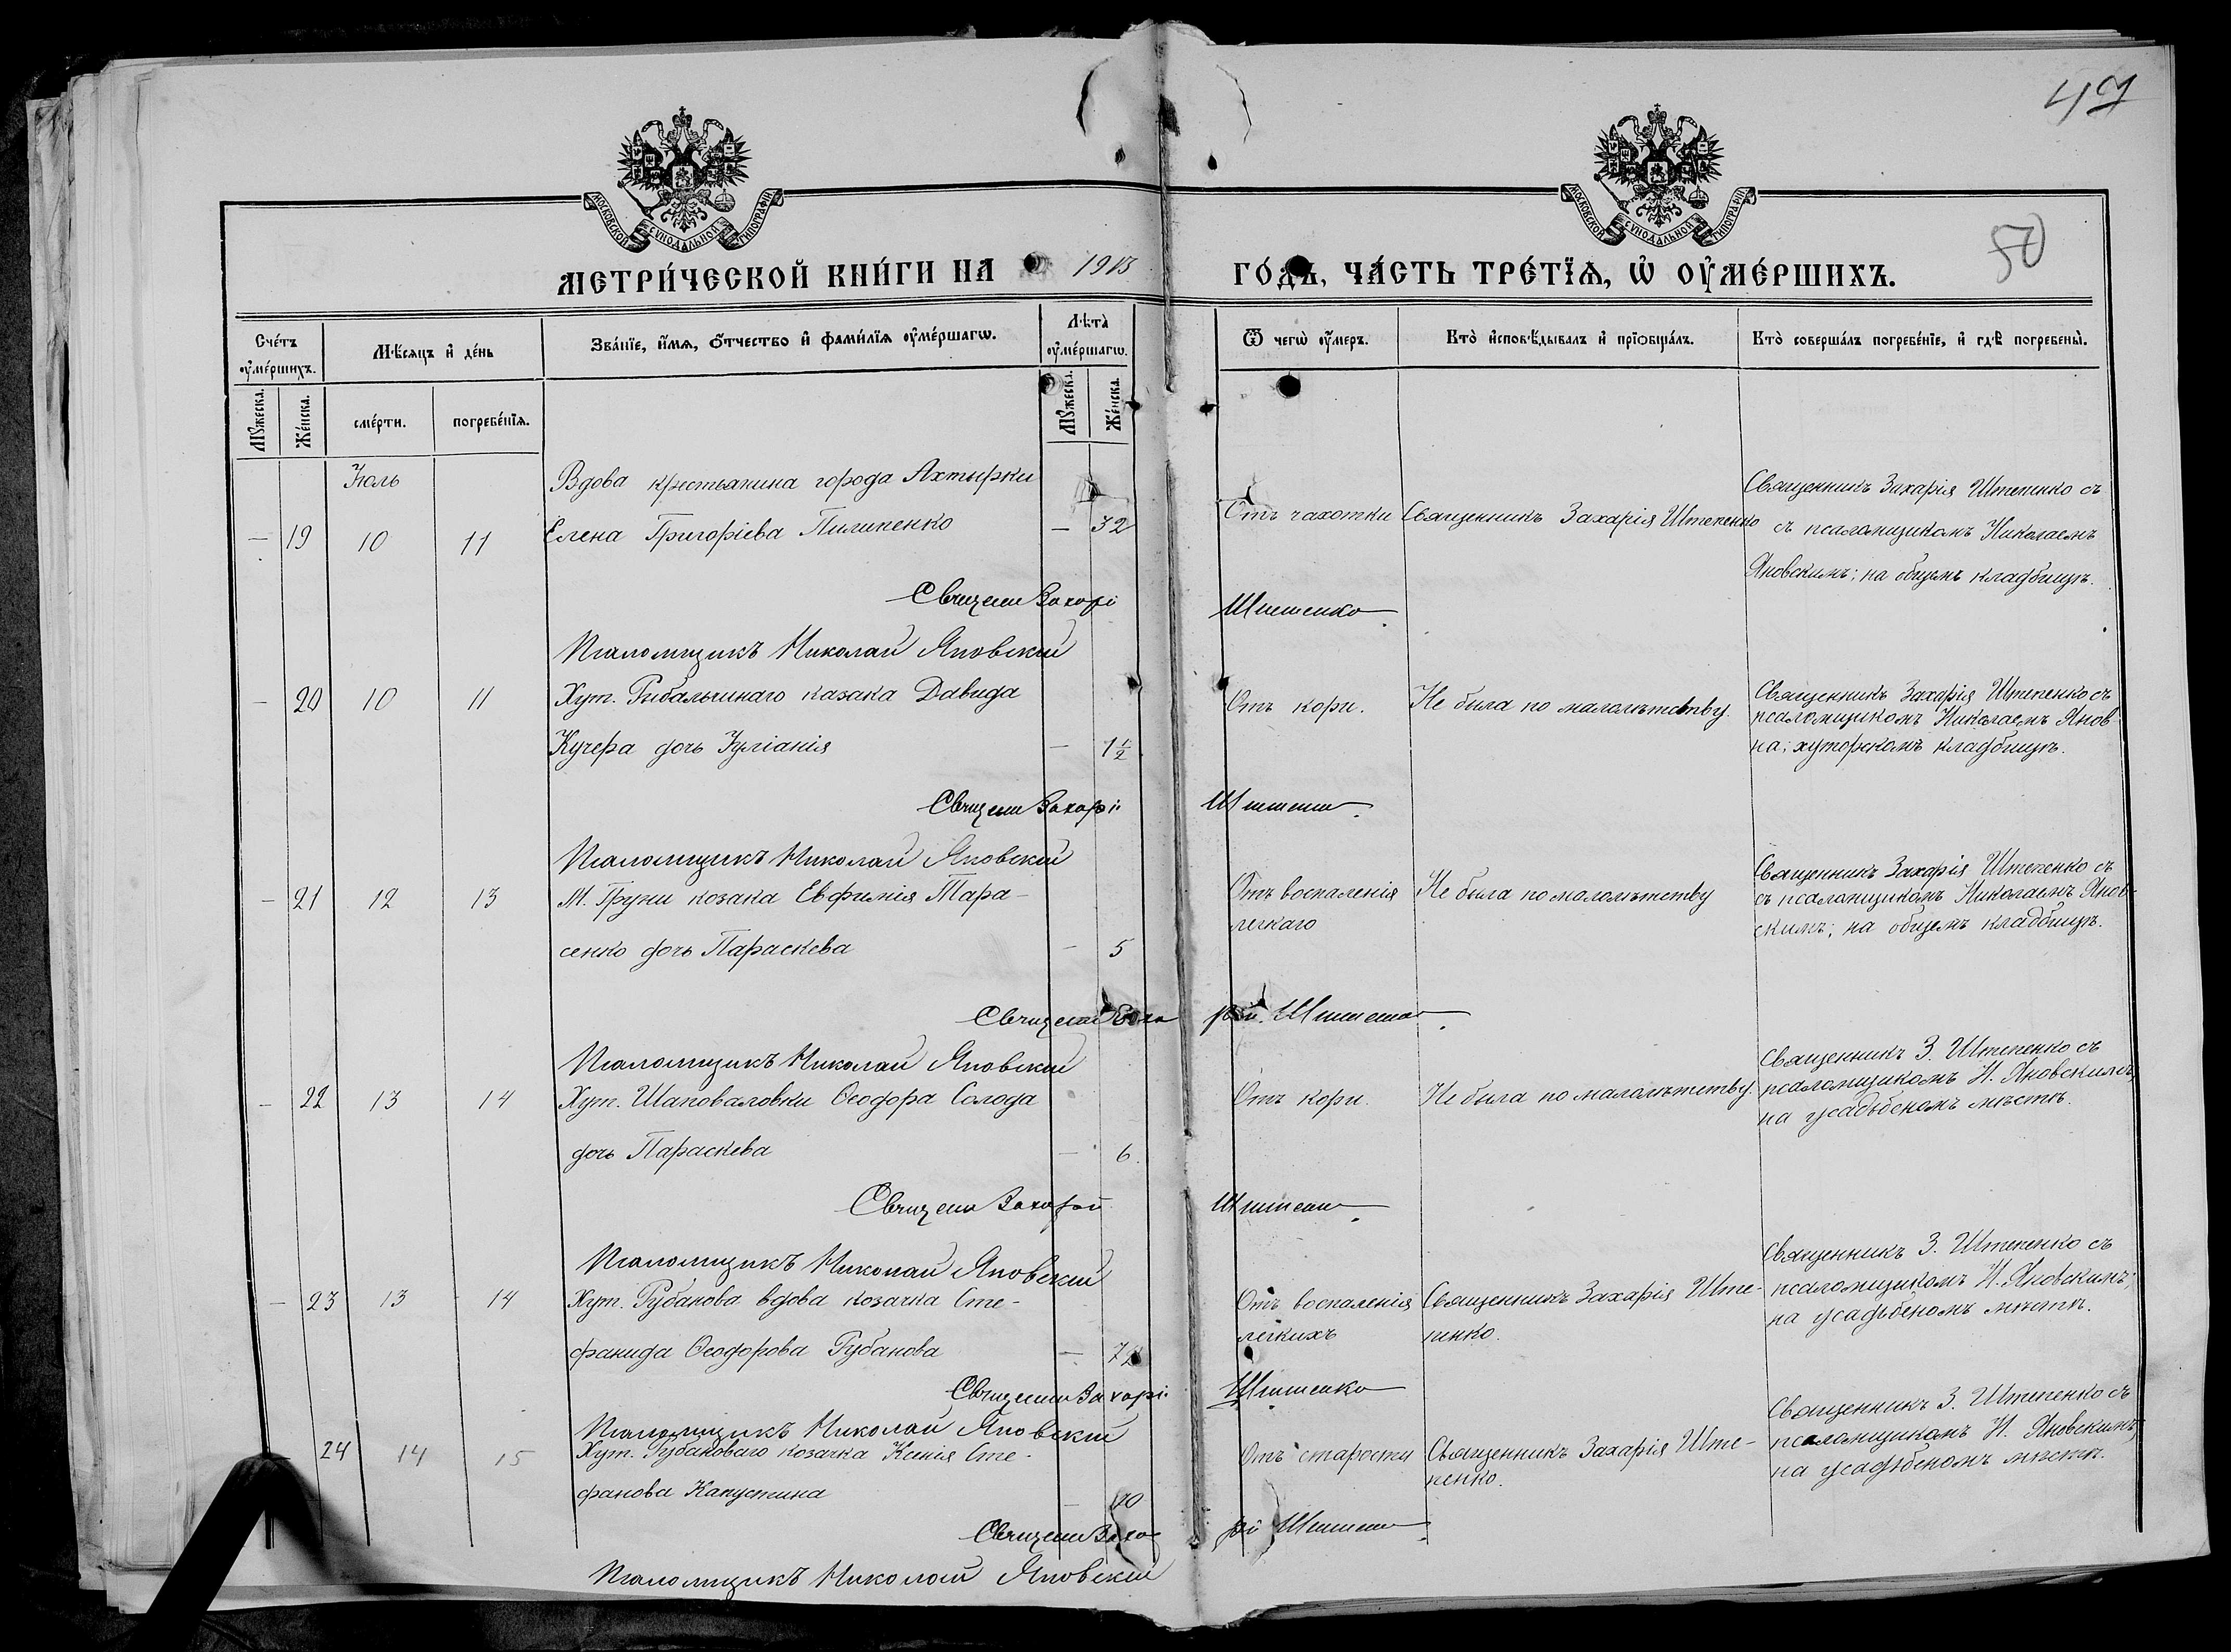 47
50
МОСКОВСКОЙ СѴНОДАЛЬНОЙ ТИПОГРАФІИ
МОСКОВСКОЙ СѴНОДАЛЬНОЙ ТИПОГРАФІИ
МЕТРИ́ЧЕСКОЙ КНИ́ГИ НА 1913 ГО́ДЪ, ЧА́СТЬ ТРЕ́ТЇѦ, Ѽ ОУ҆МЕ́РШИХЪ.
Сче́тъ оу҆ме́ршихъ.
Мꙋ́жеска.
Же́нска.
Мѣ́сяцъ и҆ де́нь
сме́рти.
погребе́нїѧ.
Зва́нїе, и҆́мѧ, ѻ҆́тчество и҆ фами́лїѧ оу҆ме́ршагѡ.
Лѣта̀ оу҆ме́ршагѡ.
Мꙋ́жеска.
Же́нска.
Ѿ чегѡ̀ оу҆́меръ.
Кто̀ и҆сповѣ́дывалъ и҆ прїѡбща́лъ.
Кто̀ соверша́лъ погребе́нїе, и҆ гдѣ̀ погребены̀.
Іюль
Вдова крестьянина города Ахтырки
— 19 10 11 Елена Григоріева Пилипенко — 32
Отъ чахотки
Священникъ Захарія Штепенко
Священникъ Захарія Штепенко съ
съ псаломщикомъ Николаемъ
Яновскимъ; на общемъ кладбищѣ.
Священ Захарі Штепенко
Псаломщикъ Николай Яновскій
— 20 10 11 Хут. Рыбальчинаго казака Давида
Кучера дочь Іуліанія — 1½
Отъ кори.
Не была по малолѣтству.
Священникъ Захарія Штепенко съ
псаломщикомъ Николаемъ Янов
на; хуторскомъ кладбищѣ.
Священ Захарі Штепенко
Псаломщикъ Николай Яновскій
— 21 12 13 М. Груни козака Евфимія Тара-
сенко дочь Параскева — 5
Отъ воспаленія
легкаго
Не была по малолѣтству
Священникъ Захарія Штепенко съ
съ псаломщикомъ Николаемъ Янов-
скимъ; на общемъ кладбищѣ.
Священ Захарій Штепенко
Псаломщикъ Николай Яновскій
— 22 13 14 Хут. Шаповаловки Ѳеодора Солода
дочь Параскева — 6.
Отъ кори.
Не была по малолѣтству.
Священникъ З. Штепенко съ
псаломщикомъ Н. Яновскимъ;
на усадьбеномъ мѣстѣ.
Священ Захарій Штепенко
Псаломщикъ Николай Яновскій
— 23 13 14 Хут. Рубанова вдова козачка Сте-
фанида Ѳеодорова Рубанова —
Отъ воспаленія
легкихъ
Священникъ Захарія Ште-
пенко.
Священникъ З. Штепенко съ
псаломщикомъ Н. Яновскимъ;
на усадьбеномъ мѣстѣ.
Священ Захарі Штепенко
Псаломщикъ Николай Яновскій
— 24 14 15 Хут. Рубановаго козачка Ксенія Сте-
фанова Капустина —
Отъ старости
Священникъ Захарія Ште-
пенко.
Священникъ З. Штепенко съ
псаломщикомъ Н. Яновскимъ;
на усадьбеномъ мѣстѣ.
Священ Захарій Штепенко
Псаломщикъ Николай Яновскій